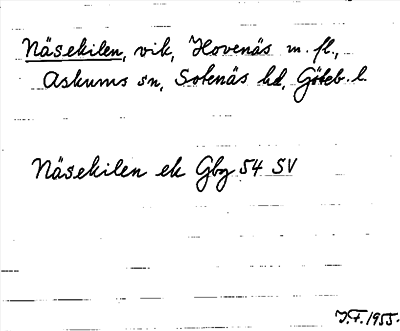 Näsekilen, vik, Hovenäs m. fl.,
Askums sn, Sotenäs hd, Göteb. l.
Näsekilen ek Gbg 54 SV
J.F. 1955.